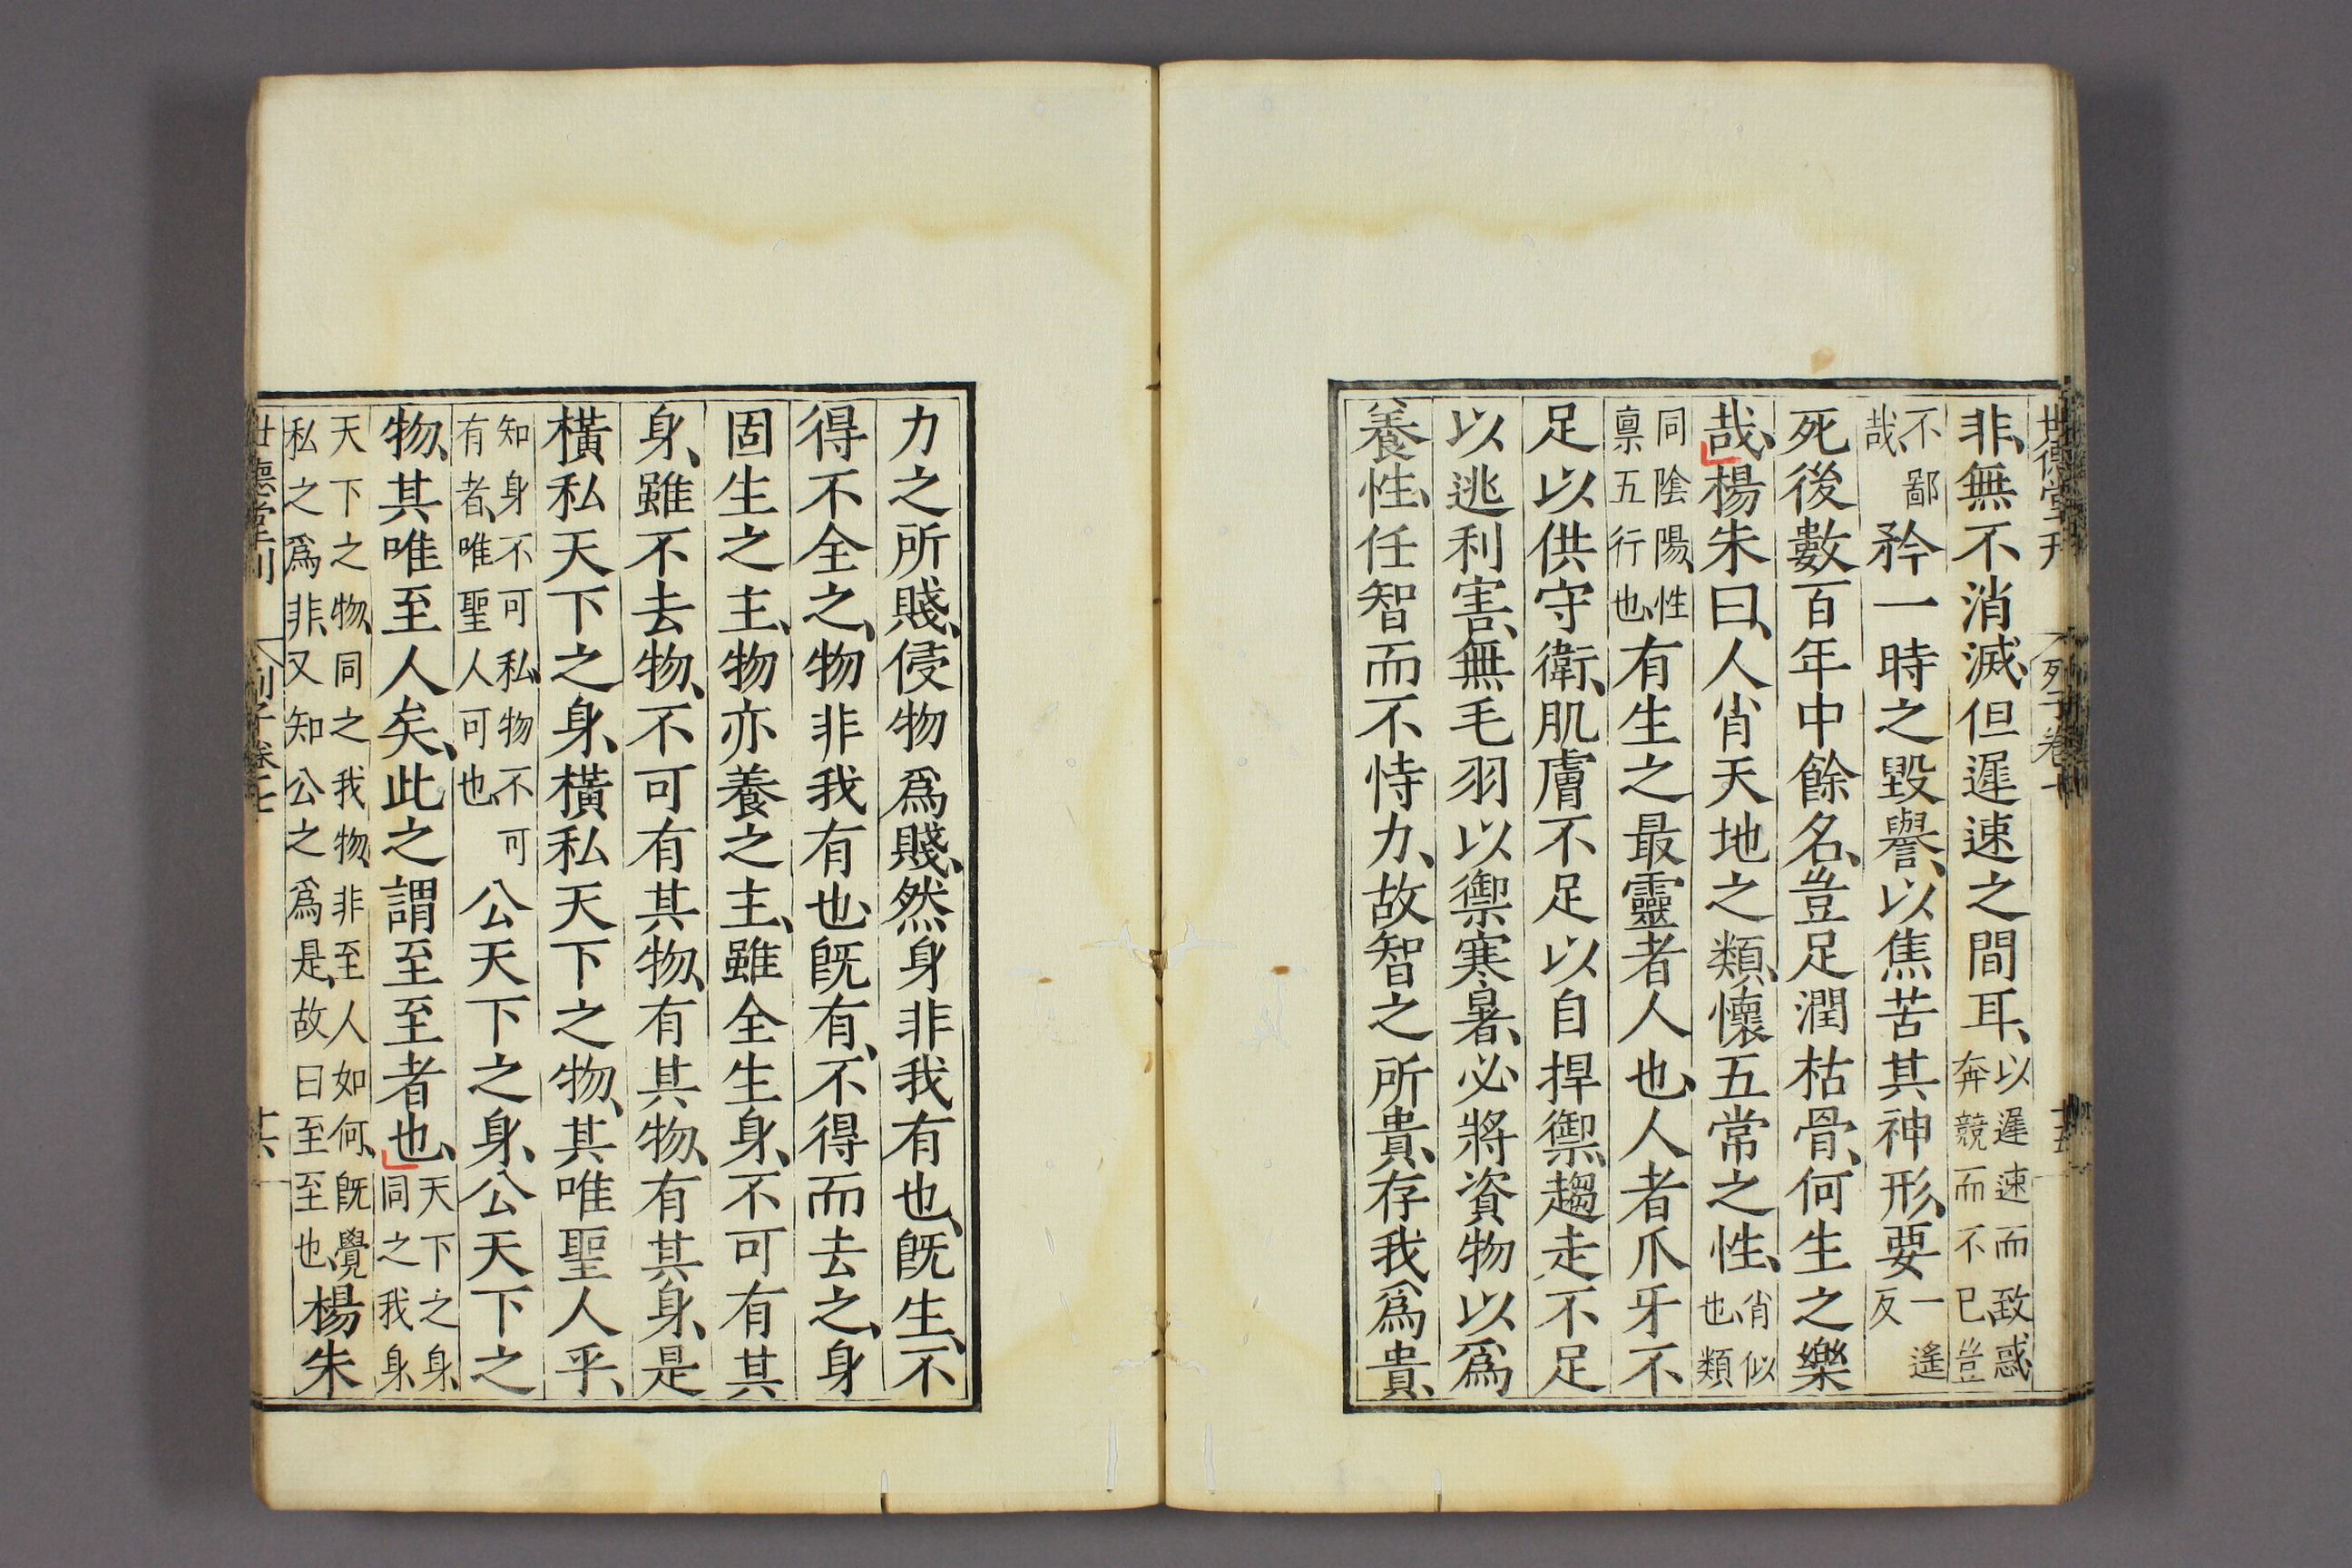 世德堂刊 列子卷七 十五
非、無不消滅、但遲速之間耳、以遲速而致惑奔競而不已、豈
不鄙哉、矜一時之毀譽、以焦苦其神形、要一遙反
死後數百年中餘名、豈足潤枯骨、何生之樂
哉、楊朱曰、人肖天地之類、懷五常之性、肖似也、類
同陰陽、性禀五行也、有生之最靈者人也、人者爪牙不
足以供守衛、肌膚不足以自捍禦、趨走不足
以逃利害、無毛羽以禦寒暑、必將資物以爲
養性、任智而不恃力、故智之所貴、存我爲貴、
力之所賤、侵物爲賤、然身非我有也、既生、不
得不全之、物非我有也、既有、不得而去之、身
固生之主、物亦養之主、雖全生身、不可有其
身、雖不去物、不可有其物、有其物、有其身、是
橫私天下之身、橫私天下之物、其唯聖人乎、
知身不可私、物不可有者、唯聖人可也、公天下之身、公天下之
物、其唯至人矣、此之謂至至者也、天下之身、同之我身、
天下之物、同之我物、非至人如何、既覺私之爲非、又知公之爲是、故曰至至也、楊朱
世德堂刊 列子卷七 十六